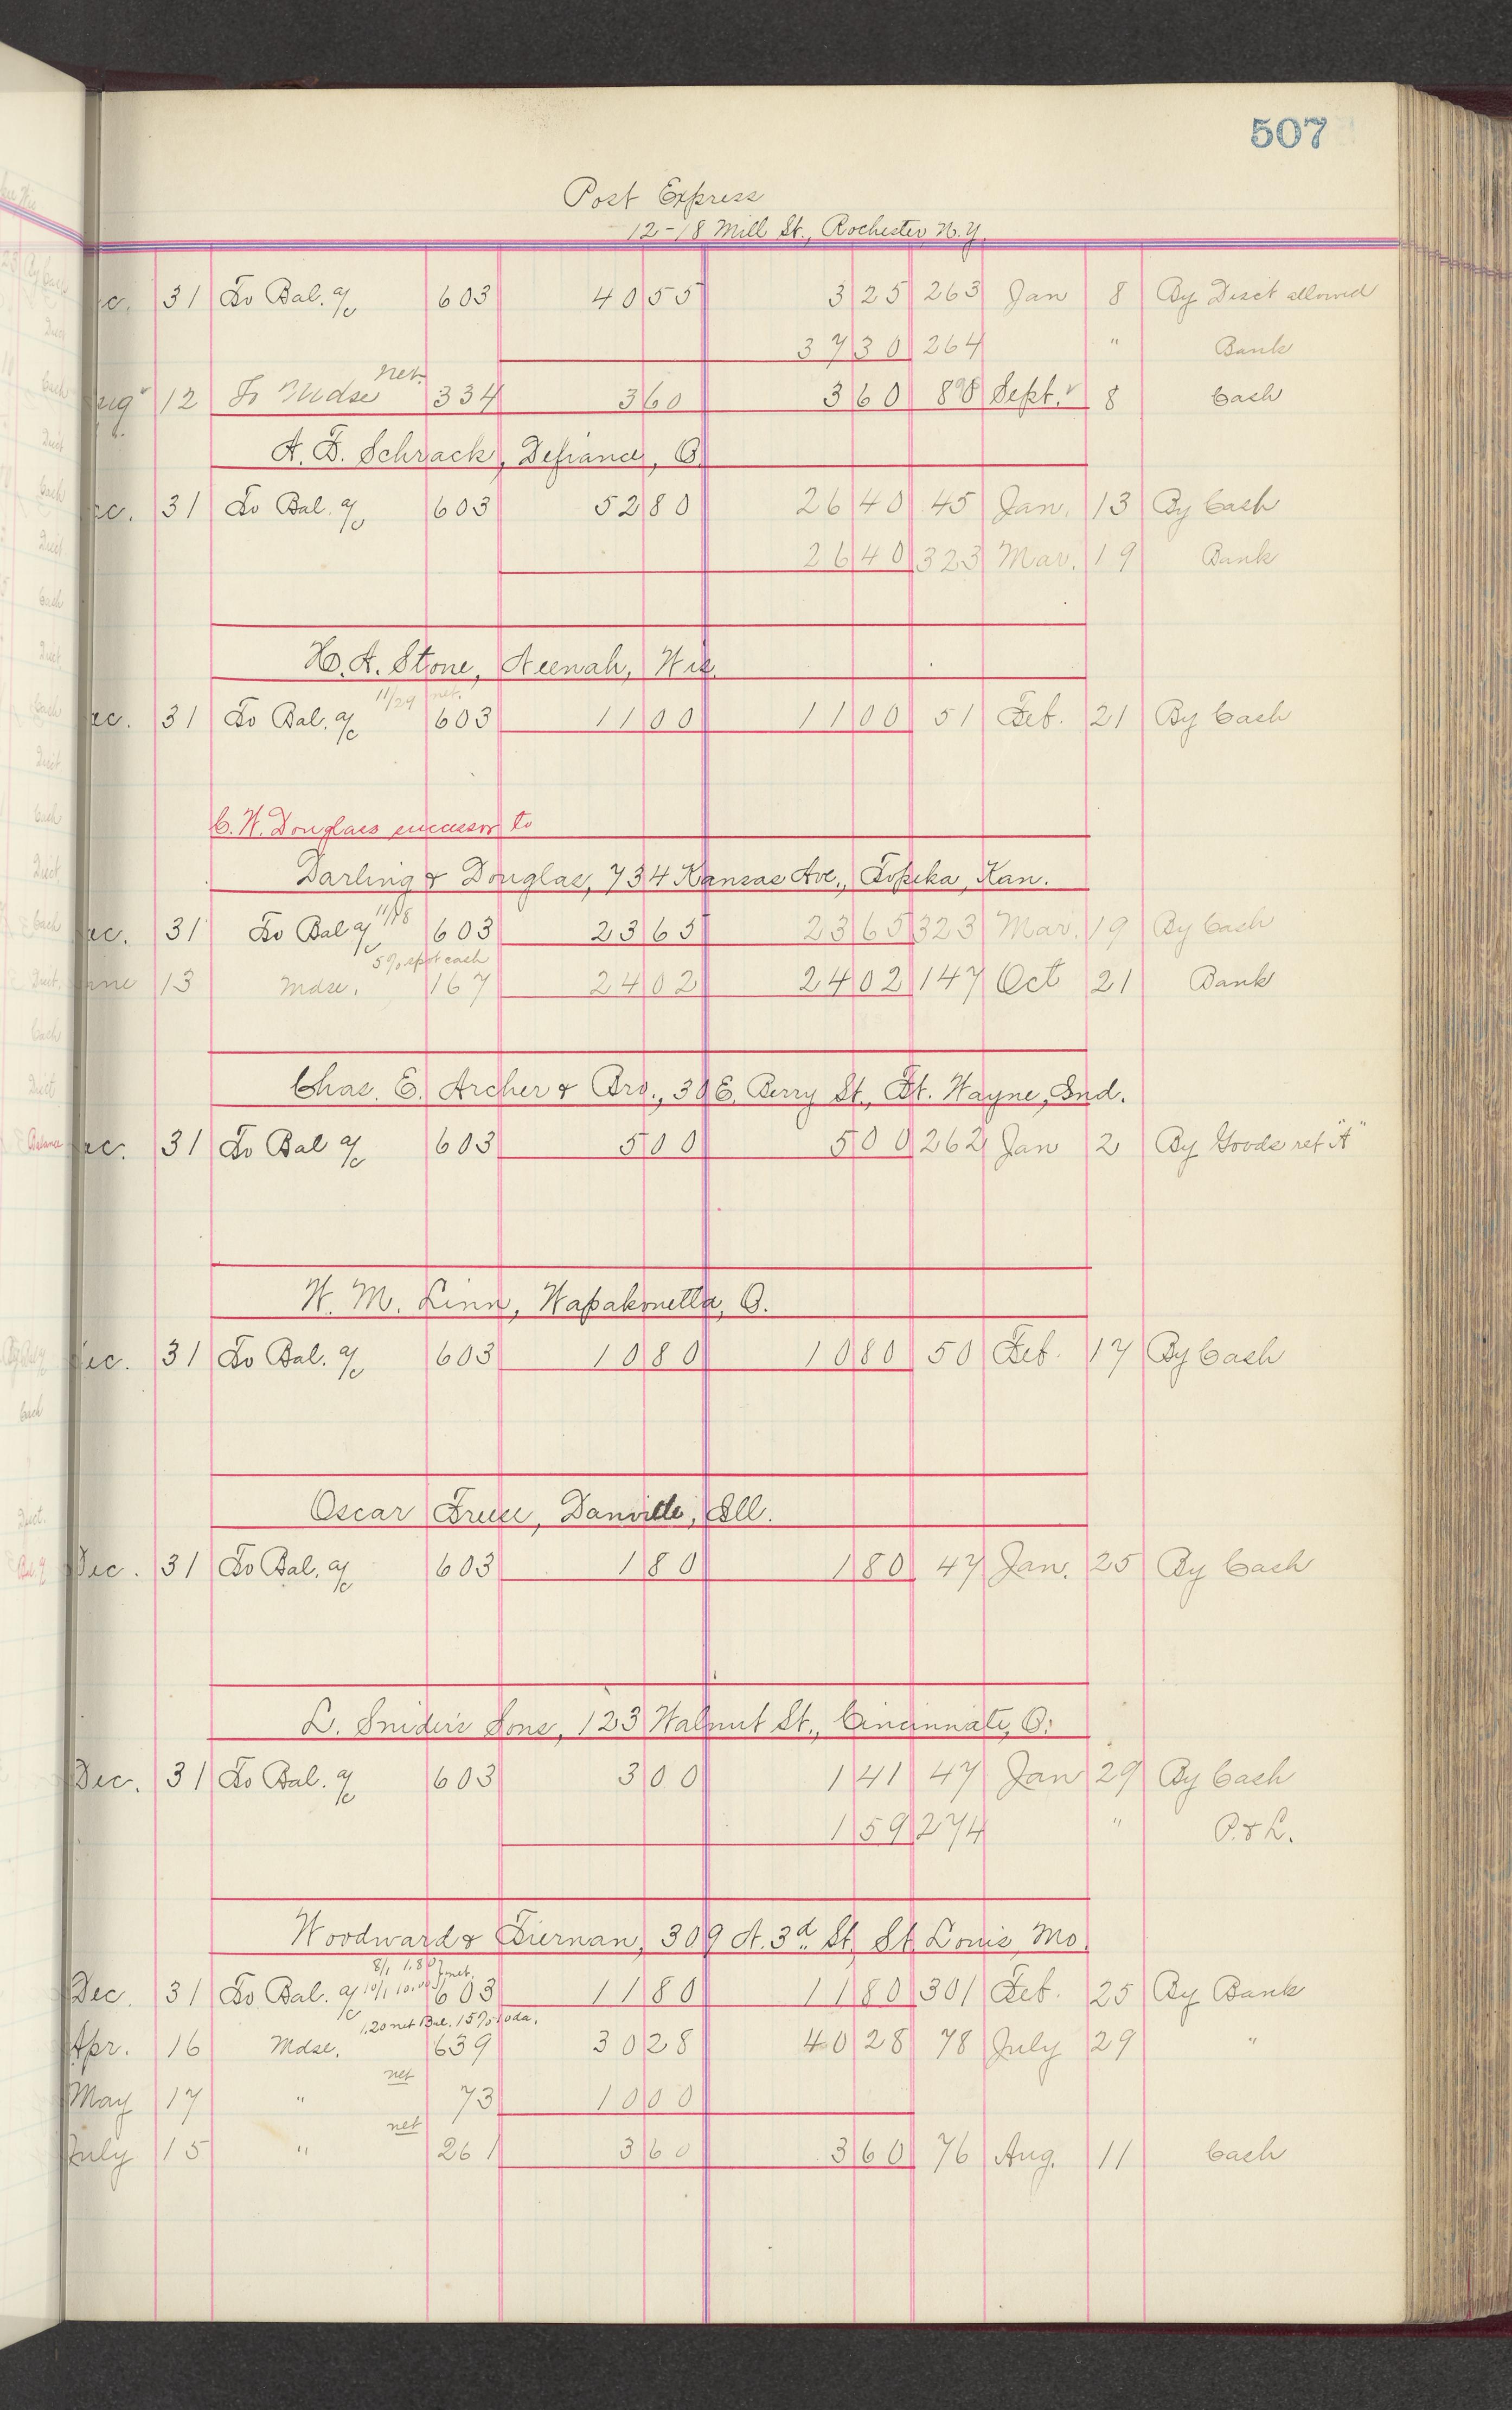 507
Post Express
12-18 Mill St., Rochester, N.Y.
c. 31 To Bal. a/c 603 40 55 3 25 263 Jan 8 By Disct allowed
37 30 264 " Bank
Aug 12 To Mdse net 334 3 60 3 60 Sept. 8 Cash
A. D. Schrack, Defiance, O.
ec. 31 To Bal. a/c 603 52 80 26 40 45 Jan. 13 By Cash
26 40 323 Mar. 19 Bank
H. A. Stone, Neenah, Wis.
11/29 net.
ec. 31 To Bal. a/c 603 11 00 11 00 51 Feb. 21 By Cash
C. W. Douglass successor to
Darling & Douglas, 734 Kansas Ave., Topeka, Kan.
ec. 31 To Bal a/c 11/18 603 23 65 23 65 323 Mar. 19 By Cash
5% spot cash
une 13 Mdse. 167 24 02 24 02 147 Oct 21 Bank
Chas. E. Archer & Bro., 30 E. Berry St., Ft. Wayne, Ind.
ec. 31 To Bal a/c 603 5 00 5 00 262 Jan 2 By Goods ret "A"
W. M. Linn, Wapakonetta, O.
ec. 31 To Bal. a/c 603 10 80 10 80 50 Feb. 17 By Cash
Oscar Freese, Danville, Ill.
Dec. 31 To Bal. a/c 603 1 80 1 80 47 Jan. 25 By Cash
L. Snider's Sons, 123 Walnut St., Cincinnati, O.
Dec. 31 To Bal. a/c 603 3 00 1 41 47 Jan 29 By Cash
1 59 274 " P. & L.
Woodward & Tiernan, 309 N. 3d St. St. Louis, Mo.
8/1 1.80 } net.
Dec. 31 To Bal. a/c 10/1 10.00 603 11 80 11 80 301 Feb. 25 By Bank
1.20 net Bal. 15% 10 da.
Apr. 16 Mdse. 639 30 28 40 28 78 July 29 "
May 17 " net 73 10 00
July 15 " net 261 3 60 3 60 76 Aug. 11 Cash